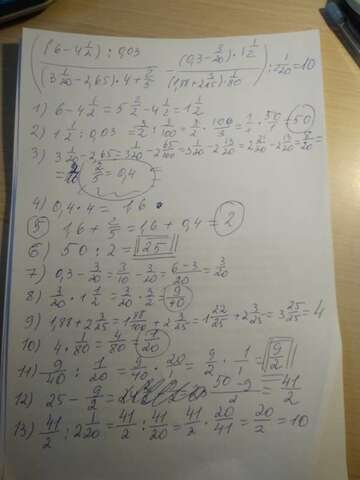 ((6-4 1/2) : 0,03 / (3 1/20 - 2,65) · 4 + 2/5 - (0,3 - 3/20) · 1 1/2 / (1,88 + 2 3/25) · 1/80) : 2 1/20 = 10
1) 6 - 4 1/2 = 5 2/2 - 4 1/2 = 1 1/2
2) 1 1/2 : 0,03 = 3/2 : 3/100 = 3/2 · 100/3 = 1/1 · 50/1 = 50
3) 3 1/20 - 2,65 = 3 1/20 - 2 65/100 = 3 1/20 - 2 13/20 = 2 21/20 - 2 13/20 = 8/20 =
= 2/5 = 0,4
4) 0,4 · 4 = 1,6
5 1,6 + 2/5 = 1,6 + 0,4 = 2
6) 50 : 2 = 25
7) 0,3 - 3/20 = 3/10 - 3/20 = 6-3/20 = 3/20
8) 3/20 · 1 1/2 = 3/20 · 3/2 = 9/40
9) 1,88 + 2 3/25 = 1 88/100 + 2 3/25 = 1 22/25 + 2 3/25 = 3 25/25 = 4
10) 4 · 1/80 = 4/80 = 1/20
11) 9/40 : 1/20 = 9/40 · 20/1 = 9/2 · 1/1 = 9/2
12) 25 - 9/2 = 50-9/2 = 41/2
13) 41/2 : 2 1/20 = 41/2 : 41/20 = 41/2 · 20/41 = 20/2 = 10